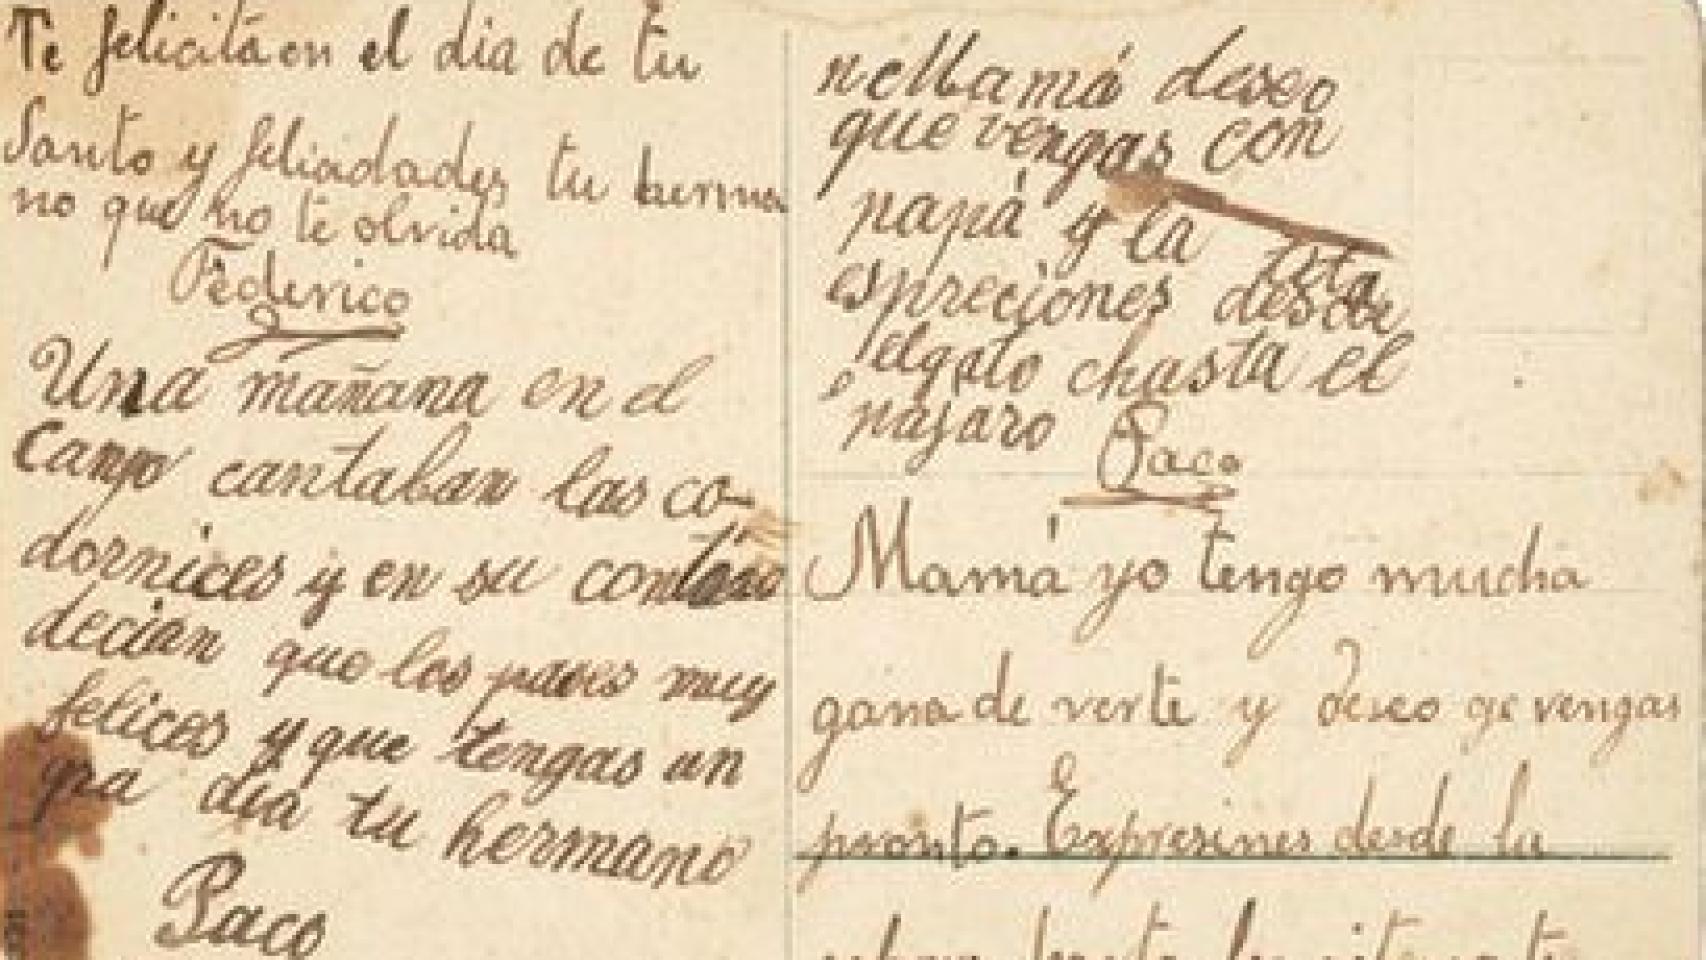 Te felicita en el dia de tu
Santo y feliadades tu herma
no que no te olvida
Federico
Una mañana en el
Campo cantaban las co-
dornices y en su
decian que los muy
felices y que tengas un
dia tu hermano
Paco
deseo
que vengas con
papá y la
espreciones desde
elgato chasta el
pájaro
Paco
Mamá yo tengo mucha
gana de verte y deseo qe vengas
pronto. Expresines desde la